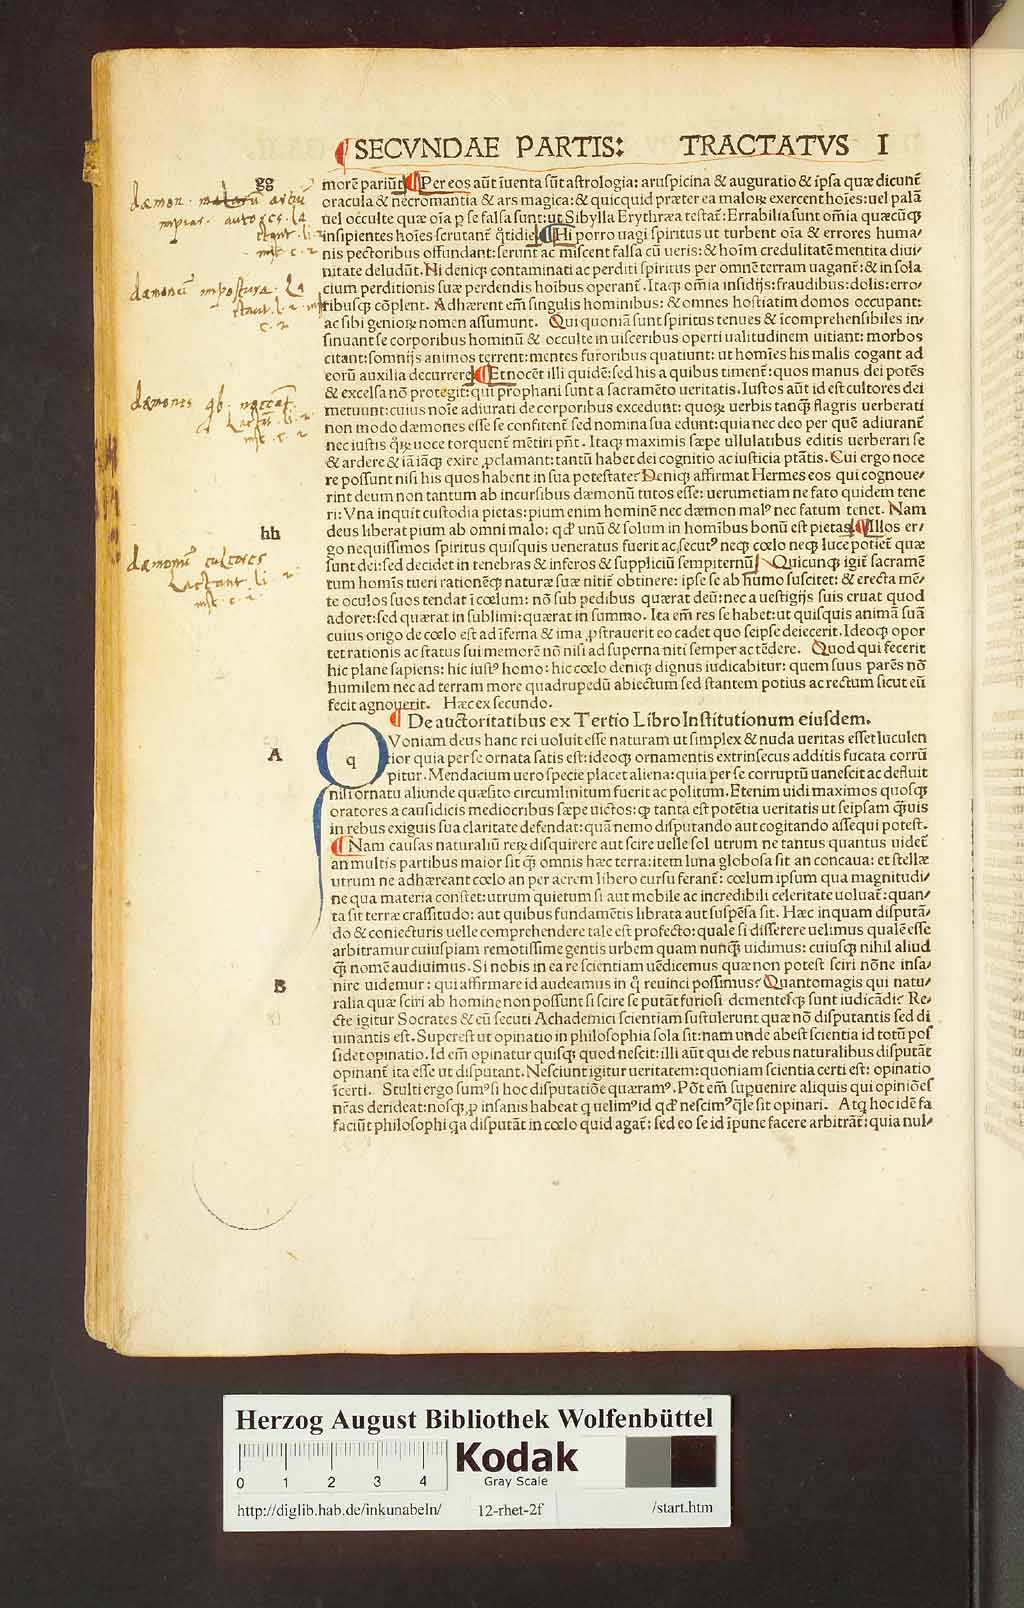 SECVNDAE PARTIS: TRACTATVS I
gg
morē pariūt Per eos aūt īuenta sūt astrologia: aruspicina & auguratio & ipsa quæ dicunt̄
oracula & necromantia & ars magica: & quicquid præter ea maloꝝ exercent hoīes: uel palā
uel occulte quæ oīa p se falsa sunt: ut Sibylla Erythræa testat̄: Errabilia sunt om̄ia quæcūqꝫ
insipientes hoīes scrutant̄ q̄tidie Hi porro uagi spiritus ut turbent oīa & errores huma/
nis pectoribus offundant: serunt ac miscent falsa cū ueris: & hoīm credulitatē mentita diui/
nitate deludūt. Hi deniqꝫ contaminati ac perditi spiritus per omnē terram uagant̄: & in sola
cium perditionis suæ perdendis hoībus operant̄. Itaqꝫ om̄ia insidijs: fraudibus: dolis: erro/
ribusqꝫ cōplent. Adhærent em̄ singulis hominibus: & omnes hostiatim domos occupant:
ac sibi genioꝝ nomen assumunt. Qui quoniā sunt spiritus tenues & īcomprehensibiles in/
sinuant se corporibus hominū & occulte in uisceribus operti ualitudinem uitiant: morbos
citant: somnijs animos terrent: mentes furoribus quatiunt: ut homīes his malis cogant ad
eorū auxilia decurrere Et nocēt illi quidē: sed his a quibus timent̄: quos manus dei potēs
& excelsa nō protegit: qui prophani sunt a sacramēto ueritatis. Iustos aūt id est cultores dei
metuunt: cuius noīe adiurati de corporibus excedunt: quoꝝ uerbis tanqꝫ flagris uerberati
non modo dæmones esse se confitent̄ sed nomina sua edunt: quia nec deo per quē adiurant̄
nec iustis q̄ꝝ uoce torquent̄ mētiri pn̄t. Itaqꝫ maximis sæpe ullulatibus editis uerberari se
& ardere & iā iāqꝫ exire ꝓclamant: tantū habet dei cognitio ac iusticia ptātis. Cui ergo noce
re possunt nisi his quos habent in sua potestate? Deniqꝫ affirmat Hermes eos qui cognoue/
rint deum non tantum ab incursibus dæmonū tutos esse: uerumetiam ne fato quidem tene
ri: Vna inquit custodia pietas: pium enim hominē nec dæmon malꝰ nec fatum tenet. Nam
hh
deus liberat pium ab omni malo: qd' unū & solum in homībus bonū est pietas Illos er/
go nequissimos spiritus quisquis ueneratus fuerit ac secutꝰ neqꝫ cœlo neqꝫ luce potiet̄ quæ
sunt dei: sed decidet in tenebras & inferos & suppliciū sempiternū Quicunqꝫ igit̄ sacramē
tum homīs tueri rationēqꝫ naturæ suæ nitit̄ obtinere: ipse se ab humo suscitet: & erecta mē/
te oculos suos tendat ī cœlum: nō sub pedibus quærat deū: nec a uestigijs suis eruat quod
adoret: sed quærat in sublimi: quærat in summo. Ita em̄ res se habet: ut quisquis animā suā
cuius origo de cœlo est ad īferna & ima ꝓstrauerit eo cadet quo seipse deiecerit. Ideoqꝫ opor
tet rationis ac status sui memorē nō nisi ad superna niti semper ac tēdere. Quod qui fecerit
hic plane sapiens: hic iustꝰ homo: hic cœlo deniqꝫ dignus iudicabitur: quem suus parēs nō
humilem nec ad terram more quadrupedū abiectum sed stantem potius ac rectum sicut eū
fecit agnouerit. Hæc ex secundo.
De auctoritatibus ex Tertio Libro Institutionum eiusdem.
A
q Voniam deus hanc rei uoluit esse naturam ut simplex & nuda ueritas esset luculen
tior quia per se ornata satis est: ideoqꝫ ornamentis extrinsecus additis fucata corrū
pitur. Mendacium uero specie placet aliena: quia per se corruptū uanescit ac defluit
nisi ornatu aliunde quæsito circumlinitum fuerit ac politum. Etenim uidi maximos quosqꝫ
oratores a causidicis mediocribus sæpe uictos: qꝫ tanta est potētia ueritatis ut seipsam q̄uis
in rebus exiguis sua claritate defendat: quā nemo disputando aut cogitando assequi potest.
Nam causas naturaliū reꝝ disquirere aut scire uelle sol utrum ne tantus quantus uidet̄
an multis partibus maior sit qꝫ omnis hæc terra: item luna globosa sit an concaua: et stellæ
utrum ne adhæreant cœlo an per aerem libero cursu ferant̄: cœlum ipsum qua magnitudi/
ne qua materia constet: utrum quietum si aut mobile ac incredibili celeritate uoluat̄: quan/
ta sit terræ crassitudo: aut quibus fundamētis librata aut suspēsa sit. Hæc inquam disputā/
do & coniecturis uelle comprehendere tale est profecto: quale si disserere uelimus qualē esse
arbitramur cuiuspiam remotissime gentis urbem quam nunqꝫ uidimus: cuiusqꝫ nihil aliud
qꝫ nomē audiuimus. Si nobis in ea re scientiam uēdicemus quæ non potest sciri nōne insa/
B
nire uidemur: qui affirmare id audeamus in q̄ reuinci possimus? Quantomagis qui natu/
ralia quæ sciri ab homine non possunt si scire se putāt furiosi dementesqꝫ sunt iudicādi? Re/
cte igitur Socrates & eū secuti Achademici scientiam sustulerunt quæ nō disputantis sed di
uinantis est. Superest ut opinatio in philosophia sola sit: nam unde abest scientia id totū pos
sidet opinatio. Id em̄ opinatur quisqꝫ quod nescit: illi aūt qui de rebus naturalibus disputāt
opinant̄ ita esse ut disputant. Nesciunt igitur ueritatem: quoniam scientia certi est: opinatio
īcerti. Stulti ergo sumꝰ si hoc disputatiōe quæramꝰ. Pōt em̄ supuenire aliquis qui opiniōes
nr̄as derideat: nosqꝫ ꝓ insanis habeat q uelimꝰ id qd' nescimꝰ q̄le sit opinari. Atqꝫ hoc idē fa
faciūt philosophi qa disputāt in cœlo quid agat̄: sed eo se id īpune facere arbitrāt̄: quia nul/
Herzog August Bibliothek Wolfenbüttel
0 1 2 3 4
Kodak
Gray Scale
http://diglib.hab.de/inkunabeln/ 12-rhet-2f /start.htm